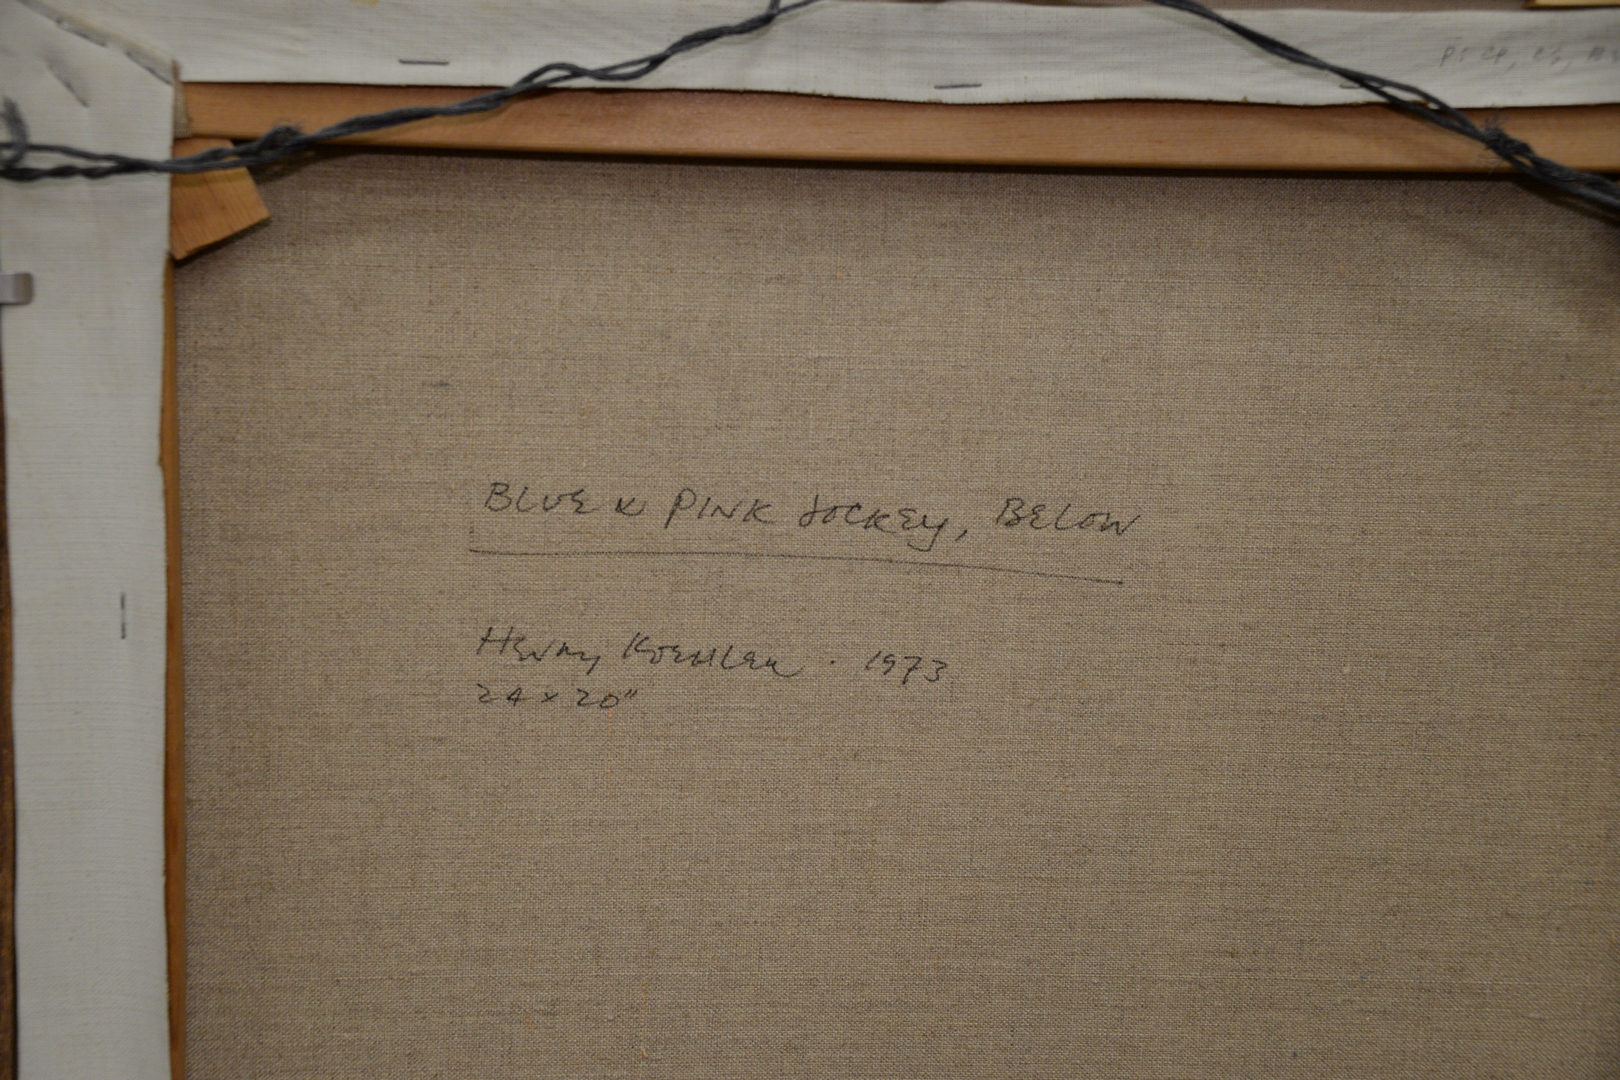 BLUE & PINK JOCKEY, BELOW
Henry Koehler · 1973
24 x 20"